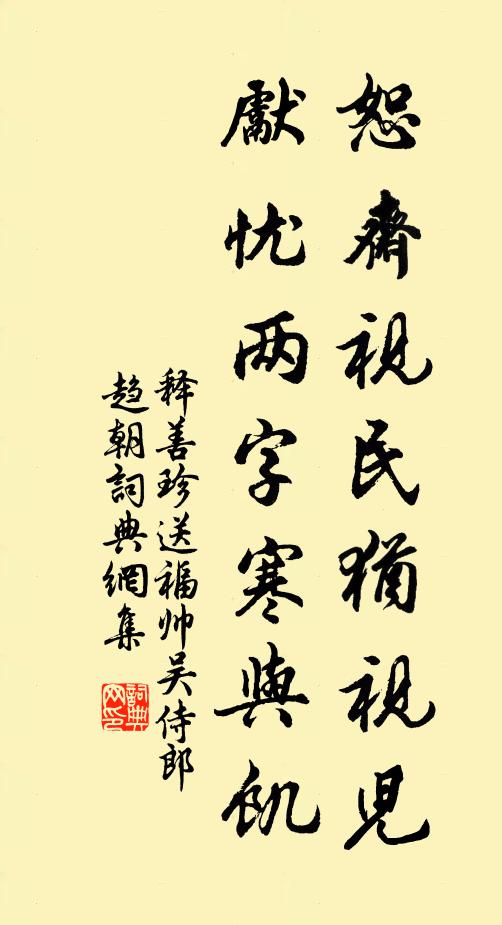 恕齋視民猶視児
獻忧两字寒與飢
释善珍送福帅吴侍郎
趋朝詞典網集
詞典网印